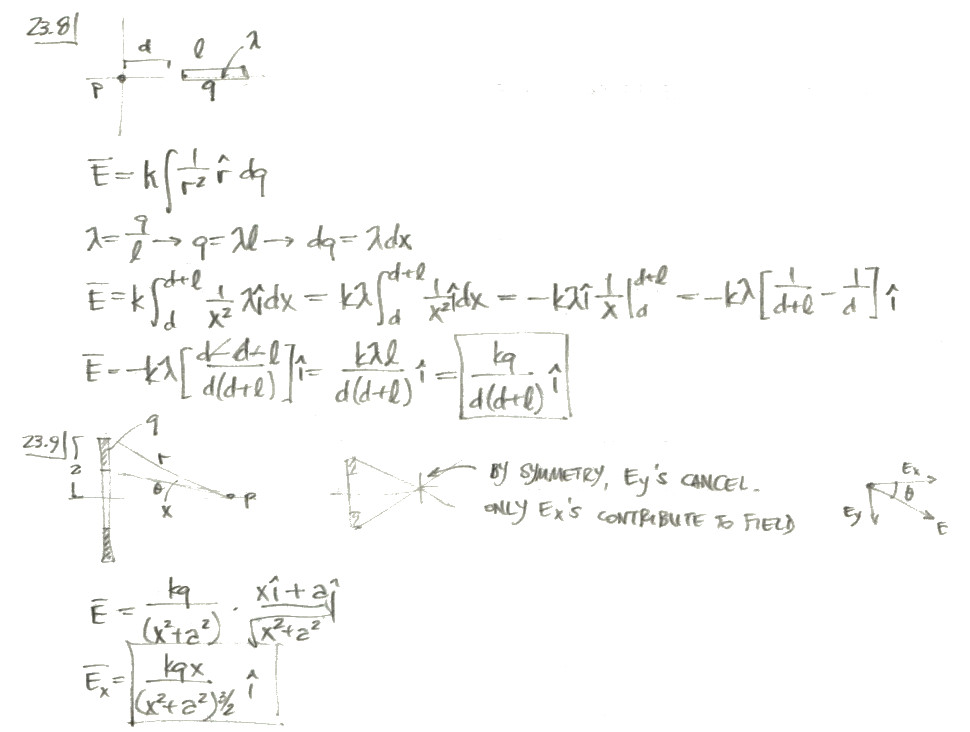 23.8
d l λ
P q
E̅ = k∫ 1/r² r̂ dq
λ = q/l → q = λl → dq = λdx
E̅ = k∫_d^{d+l} 1/x² λî dx = kλ∫_d^{d+l} 1/x² î dx = -kλî 1/x |_d^{d+l} = -kλ[1/(d+l) - 1/d] î
E̅ = -kλ[(d-d-l)/(d(d+l))] î = kλl/(d(d+l)) î = kq/(d(d+l)) î
23.9 q
a r θ x P
BY SYMMETRY, Ey's CANCEL.
ONLY Ex's CONTRIBUTE TO FIELD
Ex θ Ey E
E̅ = kq/(x²+a²) · (xî + aĵ)/√(x²+a²)
E̅x = kqx/(x²+a²)^{3/2} î